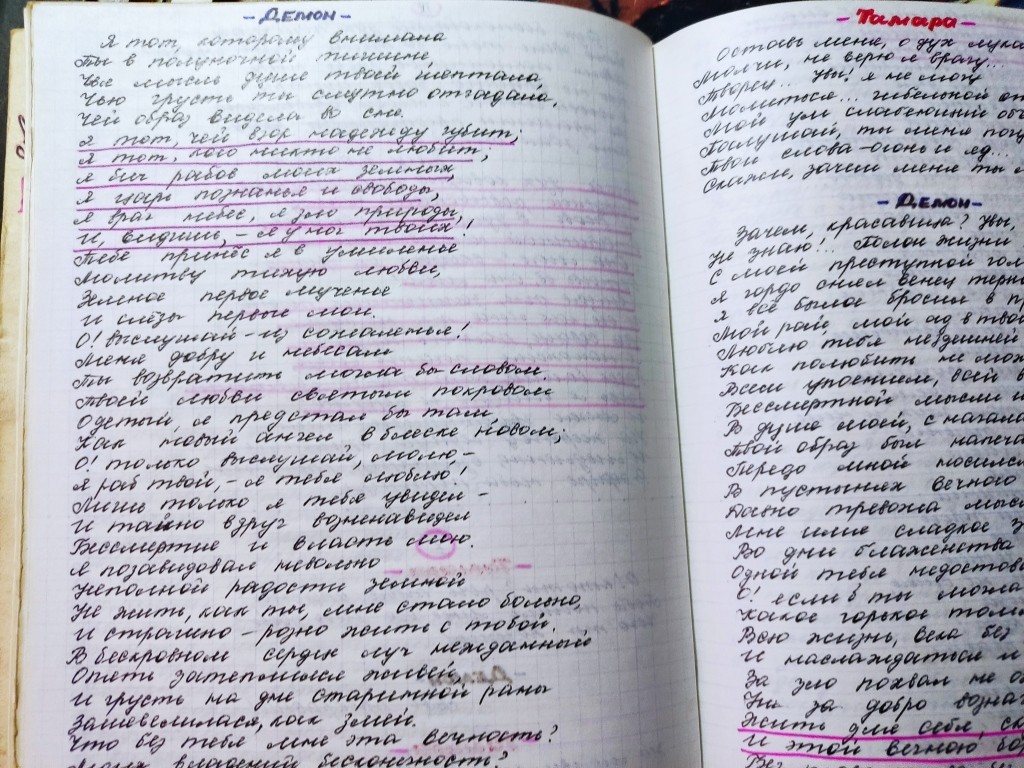 - Демон -
Я тот, которому внимала
Ты в полуночной тишине,
Чья мысль душе твоей шептала,
Чью грусть ты смутно отгадала,
Чей образ видела во сне.
Я тот, чей взор надежду губит;
Я тот, кого никто не любит,
Я бич рабов моих земных,
Я царь познанья и свободы,
Я враг небес, я зло природы,
И, видишь, - я у ног твоих!
Тебе принёс я в умиленье
Молитву тихую любви,
Земное первое мученье
И слёзы первые мои.
О! выслушай - из сожаленья!
Меня добру и небесам
Ты возвратить могла бы словом
Твоей любви святым покровом
Одетый, я предстал бы там,
Как новый ангел в блеске новом;
О! только выслушай, молю, -
Я раб твой, - я тебя люблю!
Лишь только я тебя увидел -
И тайно вдруг возненавидел
Бессмертие и власть мою.
Я позавидовал невольно
Неполной радости земной
Не жить, как ты, мне стало больно,
И страшно - розно жить с тобой.
В бескровном сердце луч нежданный
Опять затеплился живей
И грусть на дне старинной раны
Зашевелилася, как змей.
Что без тебя мне эта вечность?
Моих владений бесконечность?
- Тамара -
Оставь меня, о дух лука
Молчи, не верю я врагу...
Творец.. Увы! я не могу
Молиться... гибельной от
Мой ум слабеющий объ
Послушай, ты меня погу
Твои слова - огонь и яд...
Скажи, зачем меня ты л
- Демон -
Зачем, красавица? Увы,
Не знаю!.. Полон жизни
С моей преступной гол
Я гордо снял венец терн
Я всё былое бросил в п
Мой рай, мой ад в твои
Люблю тебя нездешней
Как полюбить не мож
Всем упоением, всей в
Бессмертной мысли и
В душе моей, с начала
Твой образ был напеча
Передо мной носился
В пустынях вечного
Давно тревожа мысл
Мне имя сладкое з
Во дни блаженства
Одной тебя недостава
О! если б ты могла
Какое горькое томл
Всю жизнь, века без
И наслаждаться и
За зло похвал не о
Ни за добро вознаг
Жить для себя, ск
И этой вечною бор
Без